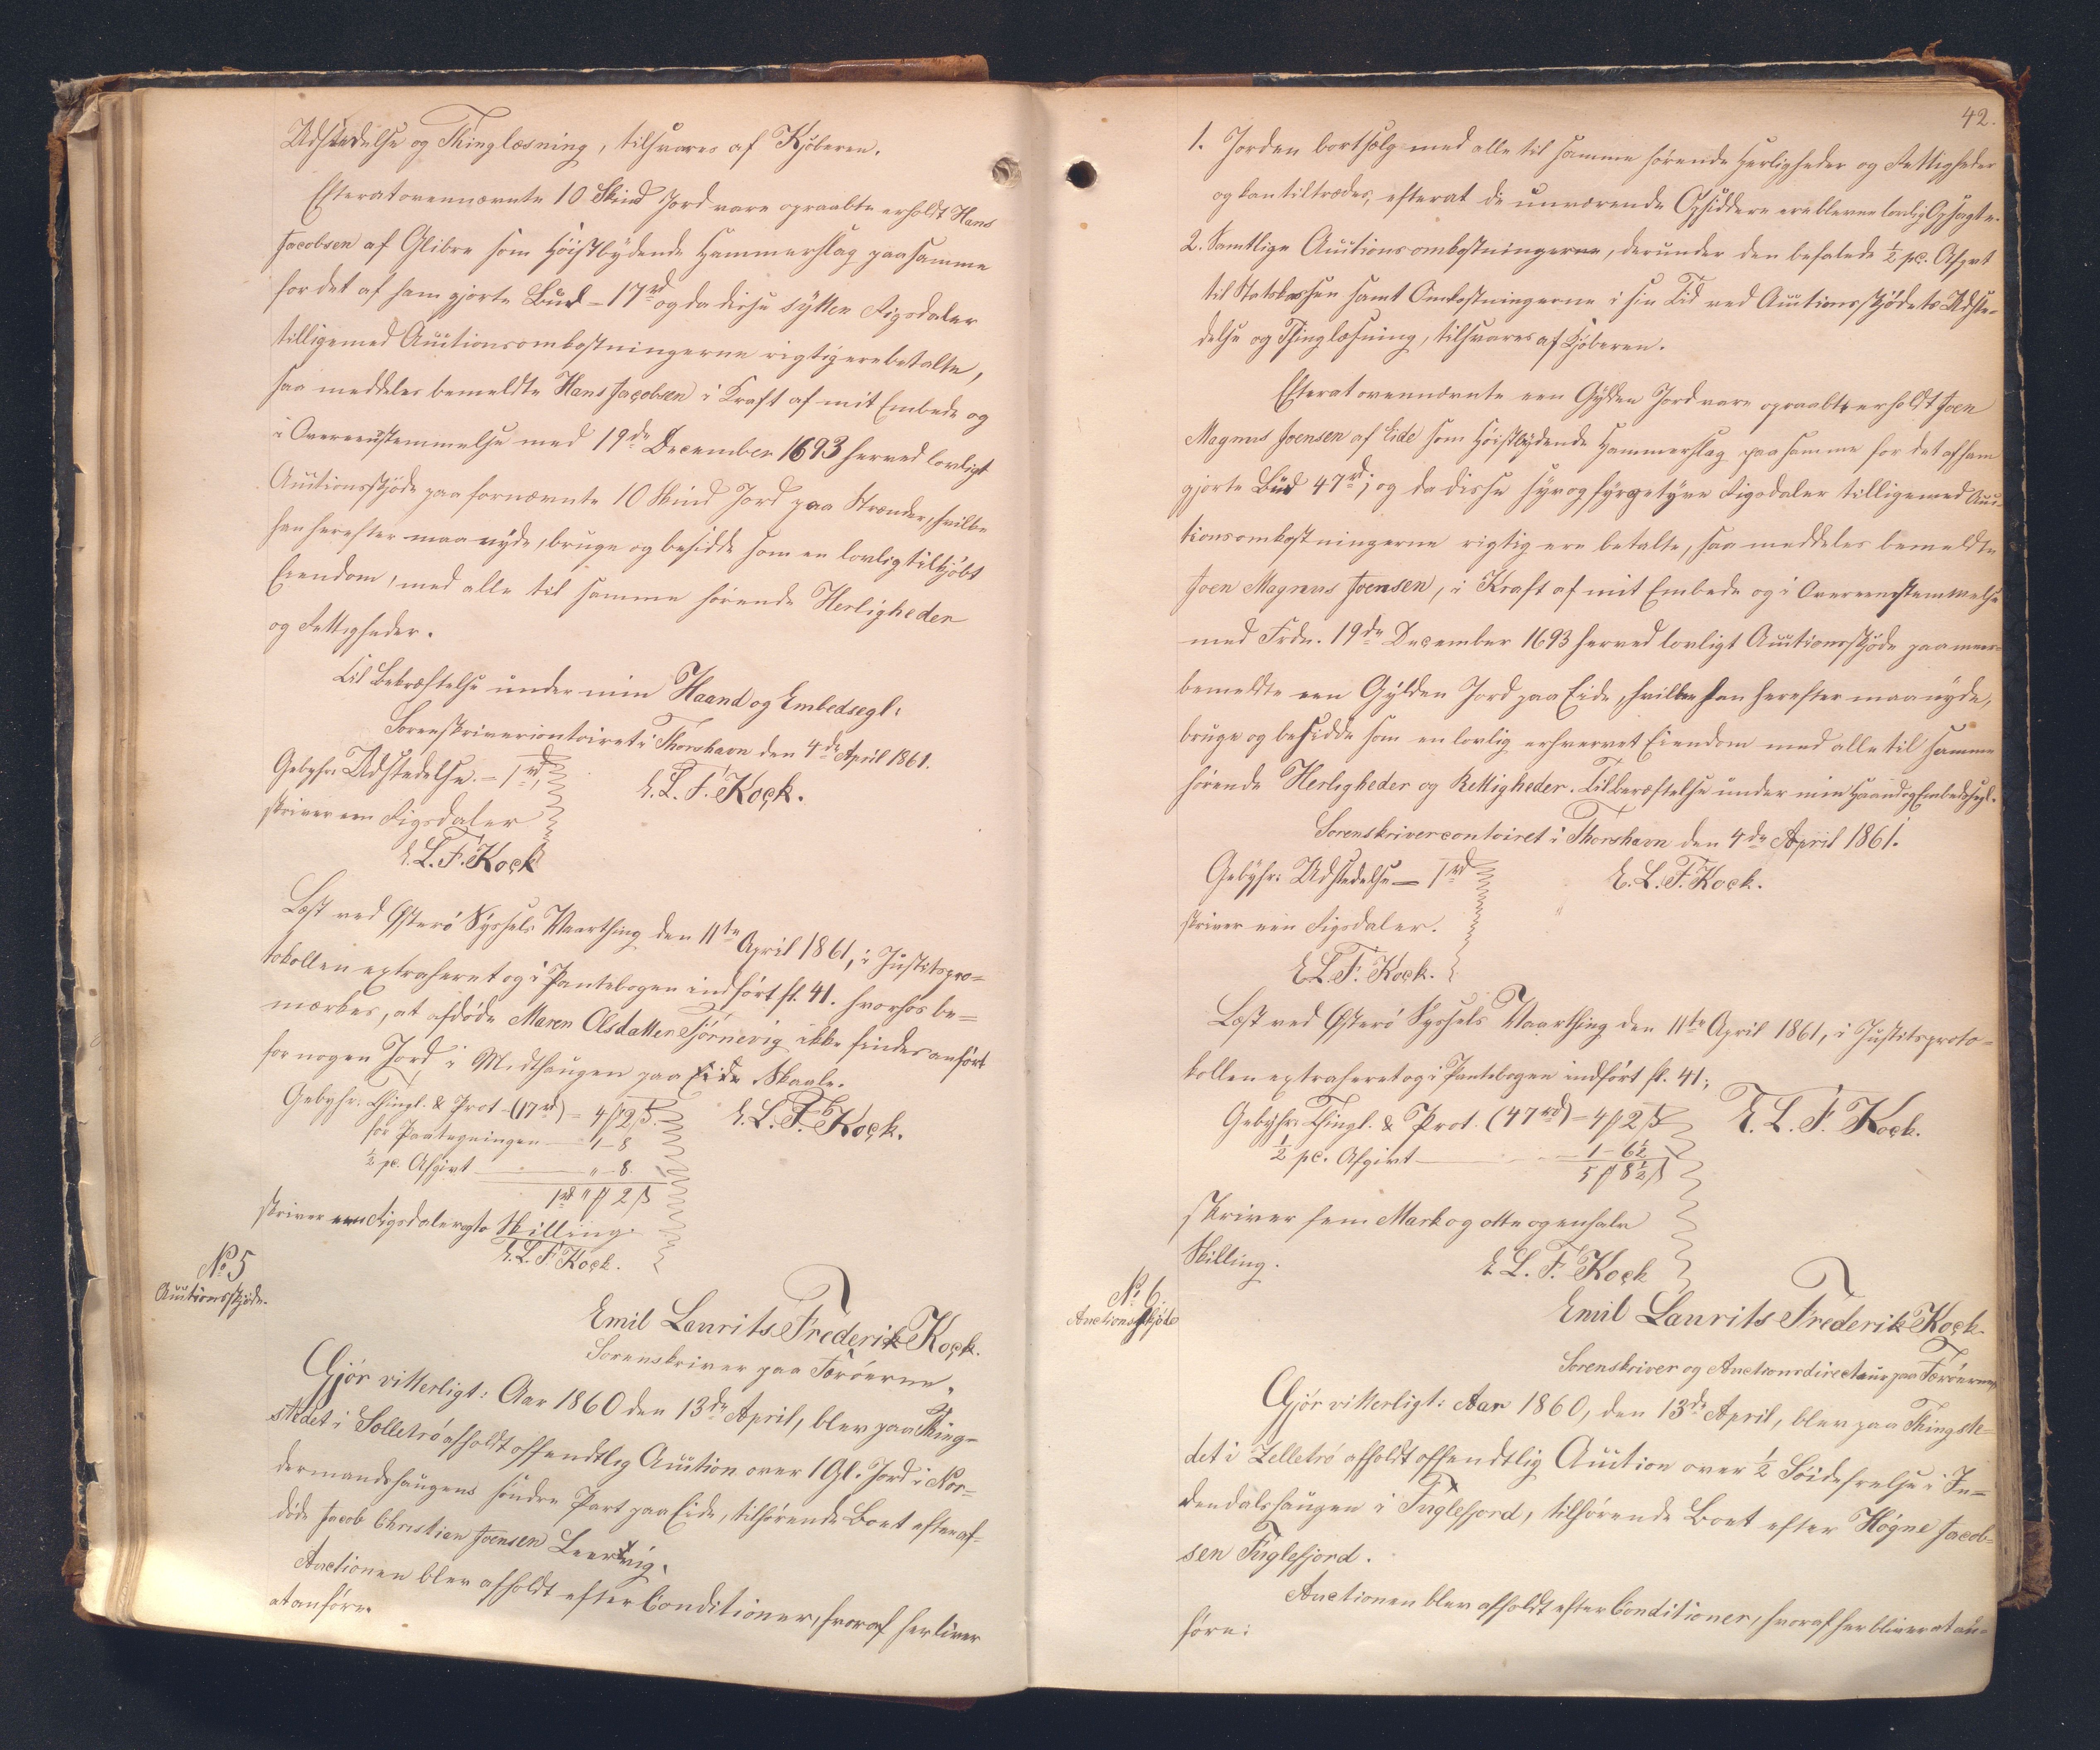 Udstedelse og Thinglæsning, tilsvares af Kjøberen.
Efterat ovennævnte 10 Skind Jord vare opraabte erholdt Hans
Jacobsen af Glibre som Høistbydende Hammerslag paa samme
for det af ham gjorte Bud - 17 rd og da disse sytten Rigsdaler
tilligemed Auctionsomkostningerne rigtig ere betalte,
saa meddeles bemeldte Hans Jacobsen i Kraft af mit Embede og
i Overeenstemmelse med 19de December 1693 herved lovligt
Auctionsskjøde paa fornævnte 10 Skind Jord paa Strænder, hvilke
han herefter maa nyde, bruge og besidde som en lovlig tilkjøbt
Eiendom, med alle til samme hørende Herligheder
og Rettigheder.
Til Bekræftelse under min Haand og Embedsegl.
Sorenskrivercontoiret i Thorshavn den 4de April 1861.
E. L. F. Kock.
Gebyhr: Udstedelse - 1 rd,
skriver een Rigsdaler
E. L. F. Kock
Læst ved Østerø Syssels Vaarthing den 11te April 1861, i Justitspro=
tokollen extraheret og i Pantebogen indført fl. 41. hvorhos be=
mærkes, at afdøde Maren Olsdatter Tjørnevig ikke findes anført
for nogen Jord i Midthaugen paa Eide Skaale.
Gebyhr. Thingl. & Prot. (17 rd) = 4 ₥ 2 ß.
for Paategningen - 1 - 8
½ pc. Afgivt - " - 8.
1 rd " ₥ 2 ß
E. L. F. Kock.
skriver een Rigsdaler og to Skilling.
E. L. F. Kock.
No 5
Auctionsskjøde.
Emil Laurits Frederik Kock.
Sorenskriver paa Færøerne.
Gjør vitterligt: Aar 1860 den 13de April, blev paa Thing-
stedet i Selletrø afholdt offendtlig Auction over 1 Gl. Jord i Nor=
dermandshaugens søndre Part paa Eide, tilhørende Boet efter af=
døde Jacob Christian Joensen Leervig.
Auctionen blev afholdt efter Conditioner, hvoraf her bliver
at anføre
42.
1. Jorden bortsælg med alle til samme hørende Herligheder og Rettigheder
og kan tiltrædes, efterat de nuværende Opsiddere ere blevne lovlig Opsagte.
2. Samtlige Auctionsomkostningerne, derunder den befalede ½ pc. Afgivt
til Statskassen samt Omkostningerne i sin Tid ved Auctionsskjødets Udste-
delse og Thinglæsning, tilsvares af Kjøberen.
Efterat ovennævnte een Gylden Jord vare opraabt erholdt Joen
Magnus Joensen af Eide som Høistbydende Hammerslag paa samme for det af ham
gjorte Bud 47 rd; og da disse syv og fyrgetyve Rigsdaler tilligemed Auc-
tionsomkostningerne rigtig ere betalte, saa meddeles bemeldte
Joen Magnus Joensen, i Kraft af mit Embede og i Overeenstemmelse
med Frdn. 19de December 1693 herved lovligt Auctionsskjøde paa meer-
bemeldte een Gylden Jord paa Eide, hvilken han herefter maa nyde,
bruge og besidde som en lovlig erhvervet Eiendom med alle til samme
hørende Herligheder og Rettigheder. Til Bekræftelse under min Haand og Embedssegl.
Sorenskrivercontoiret i Thorshavn den 4de April 1861.
Gebyhr: Udstedelse - 1 rd
E. L. F. Kock.
skriver een Rigsdaler.
E. L. F. Kock.
Læst ved Østerø Syssels Vaarthing den 11te April 1861, i Justitsproto=
kollen extraheret og i Pantebogen indført fl. 41.
Gebyhr: Thingl. & Prot. (47 rd) = 4 ₥ 2 ß
½ pc. Afgivt - 1 - 6½
5 ₥ 8½ ß
E. L. F. Kock.
skriver fem Mark og otte og en halv
Skilling.
E. L. F. Kock
No 6.
Auctionsskjøde
Emil Laurits Frederik Kock.
Sorenskriver og Auctionsdirecteur paa Færøerne,
Gjør vitterligt: Aar 1860, den 13de April, blev paa Thingste=
det i Zelletrø afholdt offendtlig Auction over ½ Søidefrelse i In=
dendalshaugen i Fuglefjord, tilhørende Boet efter Høgne Jacob=
sen Fuglefjord.
Auctionen blev afholdt efter Conditioner, hvoraf her bliver at an=
føre: